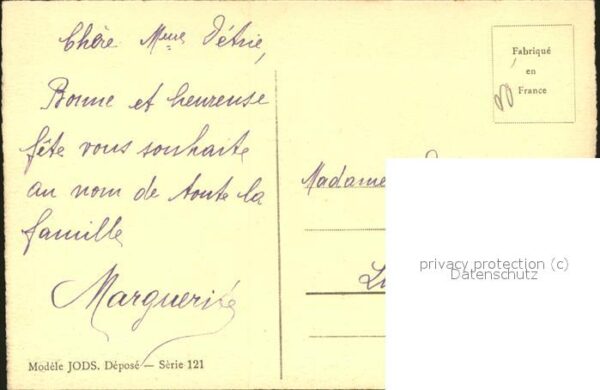 Chère Mme Détrie,
Bonne et heureuse
fête vous souhaite
au nom de toute la
famille
Marguerite
Modèle JODS. Déposé — Série 121
Fabriqué
en
France
Madame
privacy protection (c)
Datenschutz